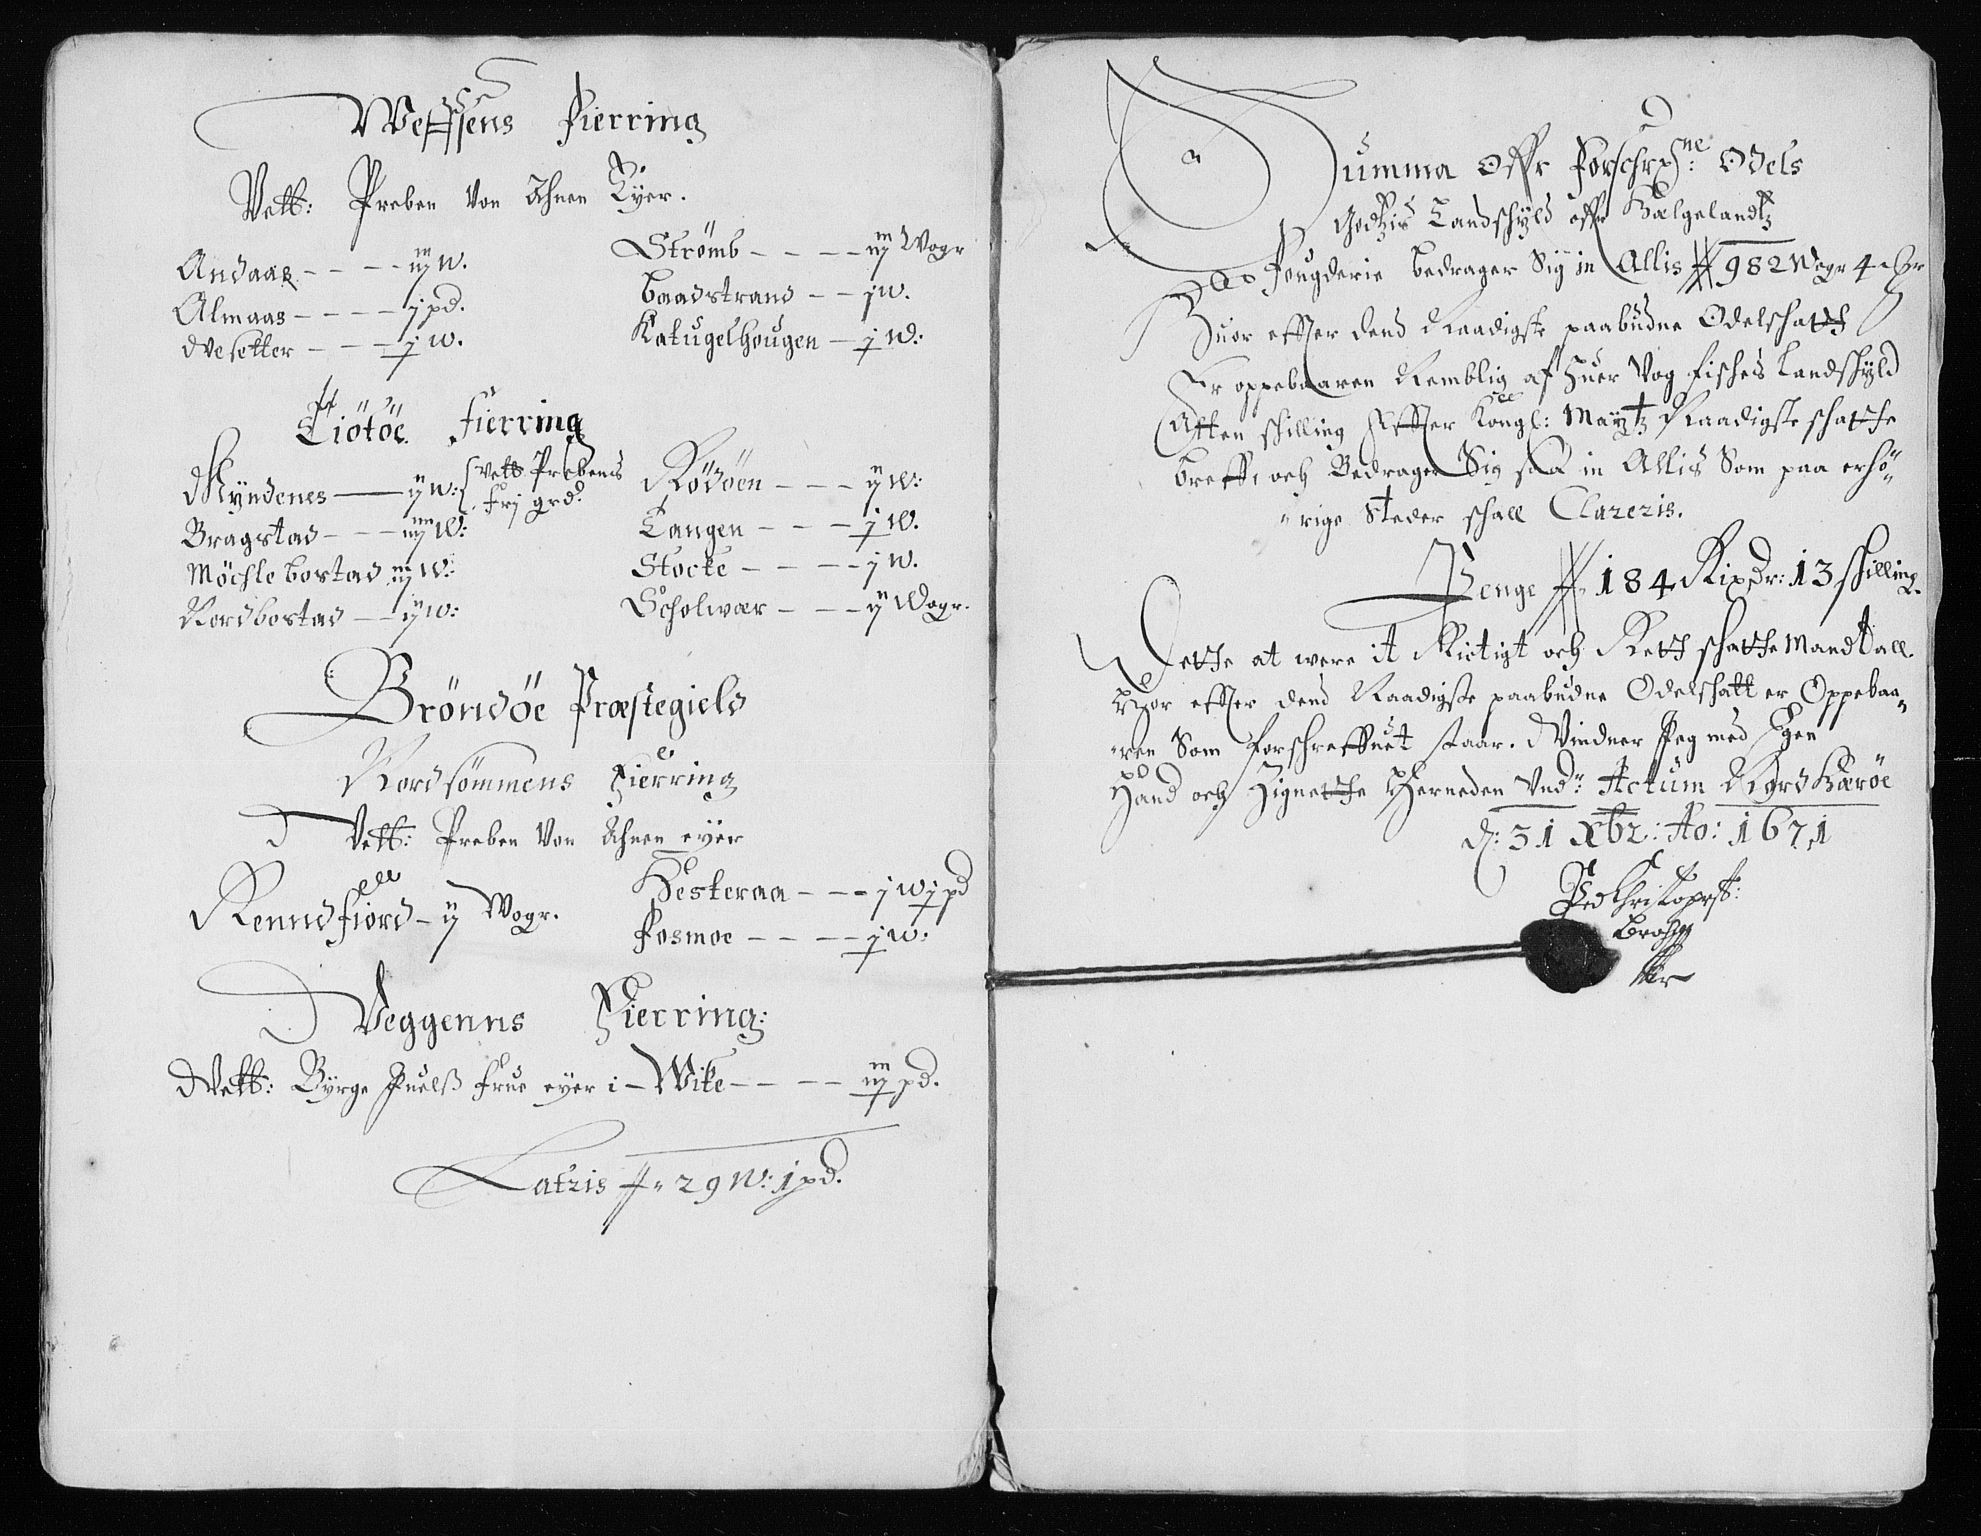 Weffsens Fierring
Velb: Preben von Ahnen Eyer.
Andaas - - - - iij W.
Almaas - - - - j pd.
Vesetter - - - j W.
Strömb - - - - iij Wogr
Baadstrand - - j W.
Katugelhougen - j W:
Tiötöe Fierring
Myndenes - ij W: Velb Prebens
frj grd:
Bragstad - - - iiij W:
Möchlebostad iij W:
Nordbostad - - ij W:
Rödöen - - - ij W:
Tangen - - - j W.
Stocke - - - - j W.
Scholwær - - - ij Wogr.
Bröndöe Præstegield
Nordsömmens Fierring
Velb: Preben von Ahnen eyer
Renndfiord - ij Wogr.
Hesteraa - - - j W j pd
Fosmoe - - - - j W:
Veggenns Fierring:
Velb: Byrge Juelß Frue eyer i - Wike - - - - iij pd.
Latris 29 W: 1 pd.
Summa Offr Forschrne: Odels
Godtzis Landschyld offr Helgelandtz
Fougderie bedrager Sig in Allis 982 Wogr 4
Huor effter dend Naadigste paabudne Odelschatt
Er oppebaaren Nemblig af Huer Vog fisches Landschyld
Atten skilling Effter Kongl: Maytz Naadigste schatte
breff, och Bedrager Sig saa in Allis Som paa erhö-
rige Steder schall Clareris.
Penge 184 Rixdr: 13 skilling.
Dette at were it Rictigt och Rett schatte Mandtall.
Huor effter dend Naadigste paabudne Odelschatt er Oppebaa-
ren Som forschreffuet staar. Vindner Jeg med Egen
Haand och Zignette Herneden Und: Actum Nord Herøe
d: 31 Xbr: Ao: 1671
Ped Christopherß:
Broch